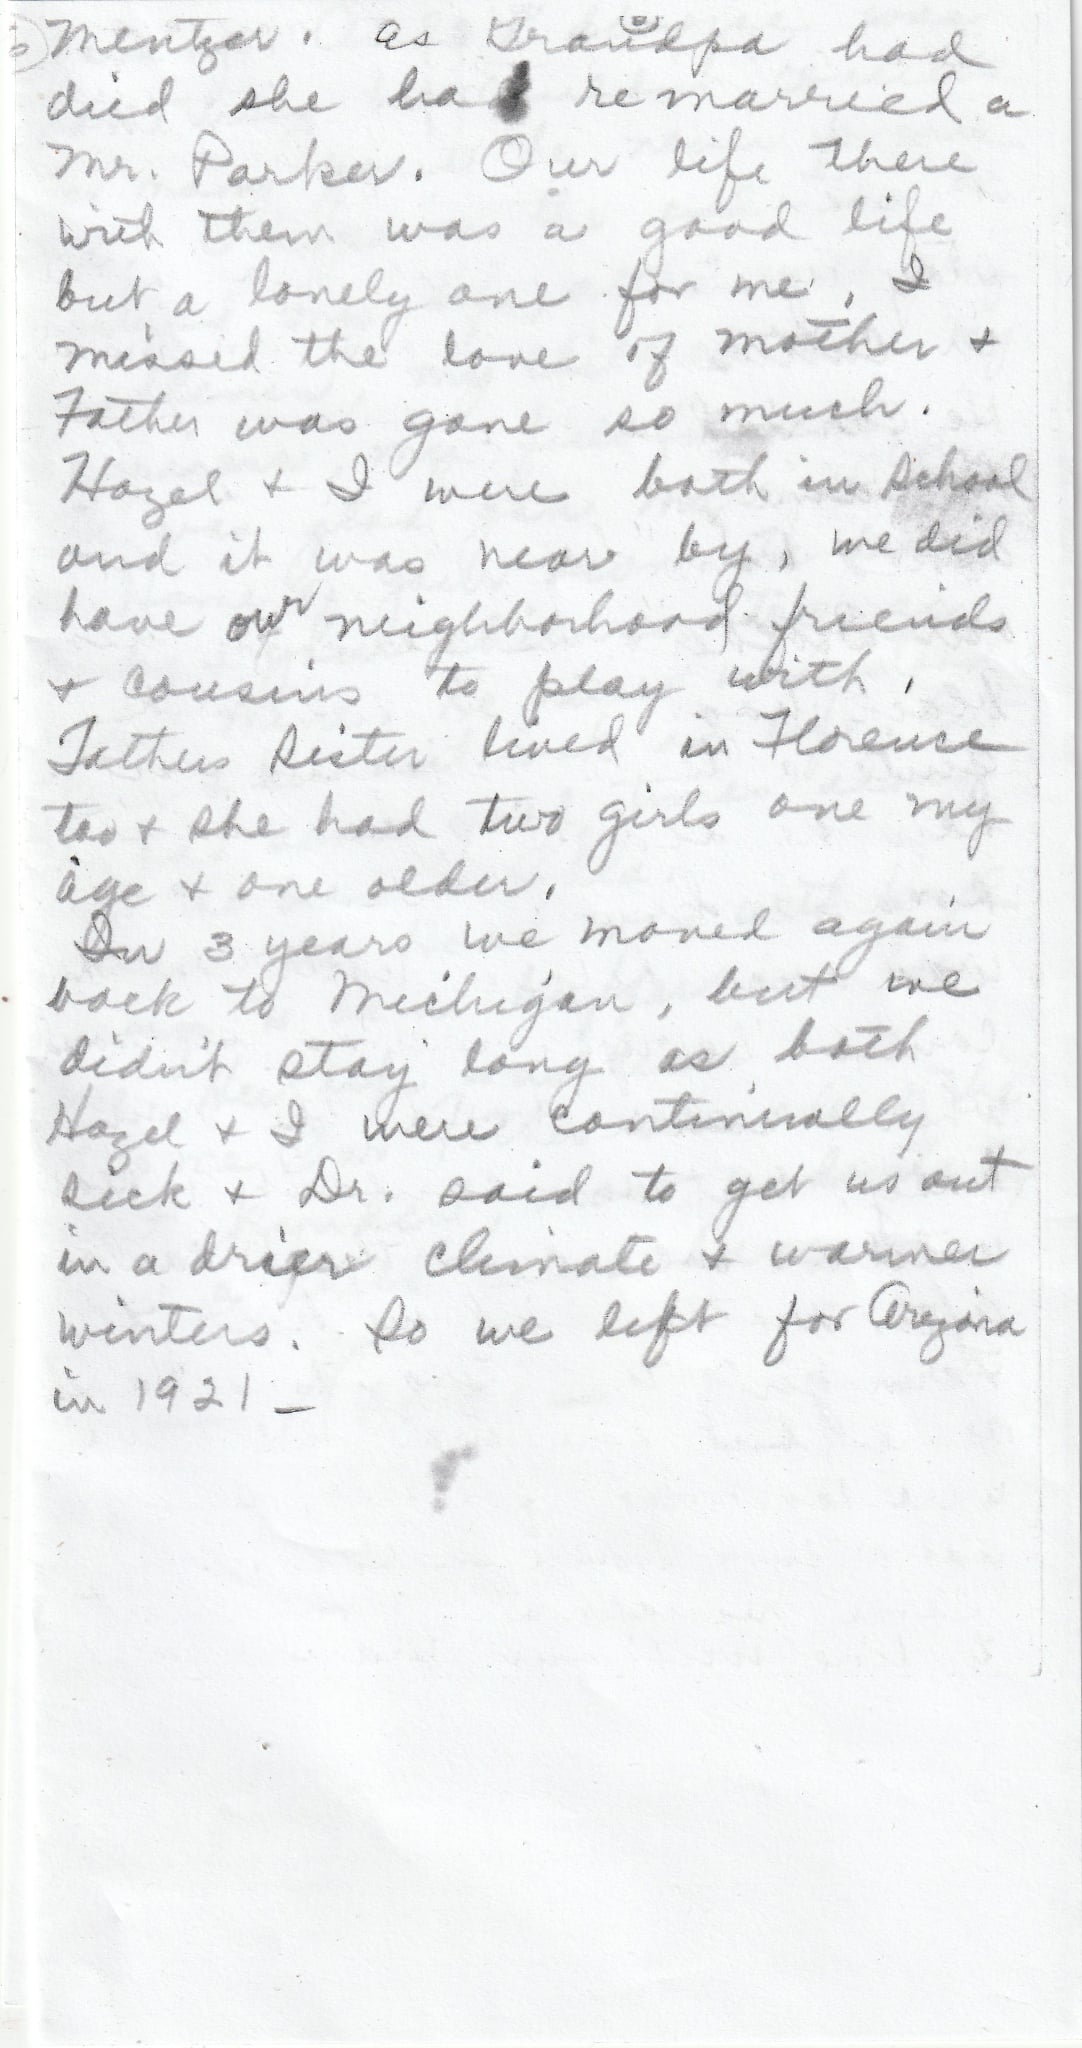 Mentzer. as Grandpa had
died she had remarried a
Mr. Parker. Our life there
with them was a good life
but a lonely one for me. I
missed the love of mother +
Father was gone so much.
Hazel + I were both in School
and it was near by, we did
have our neighborhood friends
+ cousins to play with.
Fathers sister lived in Florence
too + she had two girls one my
age + one older.
In 3 years we moved again
back to Michigan, but we
didn't stay long as both
Hazel + I were continually
sick + Dr. said to get us out
in a drier climate + warmer
winters. So we left for Arizona
in 1921 –